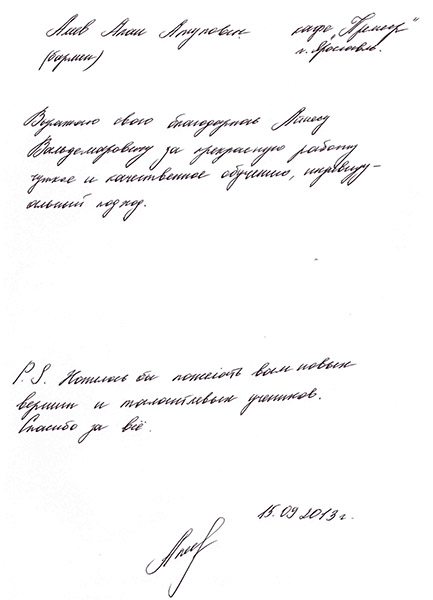 Алиев Агаи Агупович кафе "Премьер"
(бармен) г. Ярославль.
Выражаю свою благодарность Алнесу
Вальдемаровичу за прекрасную работу
чуткое и качественное обучению, индивиду-
альный подход.
P.S. Хотелось бы пожелать вам новых
вершин и талантливых учеников.
Спасибо за всё.
15.09.2013 г.